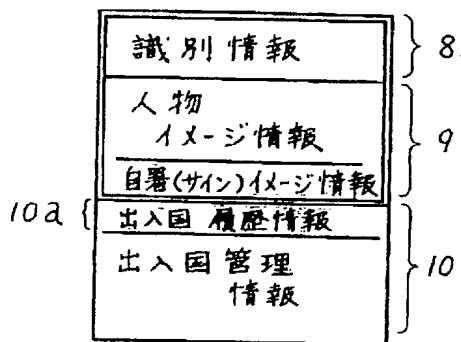 識別情報 } 8
人物
イメージ情報 } 9
自署(サイン)イメージ情報
10a { 出入国 履歴情報
出入国管理 } 10
情報